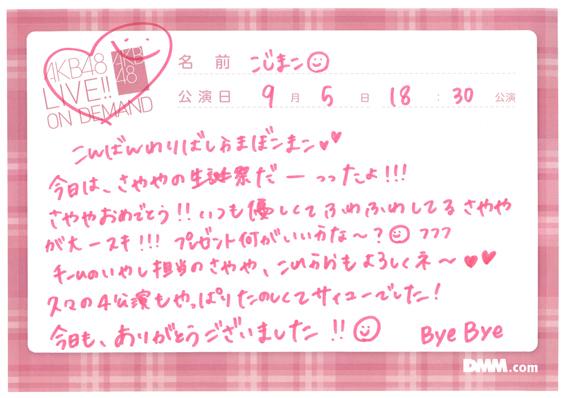 AKB48
LIVE!!
ON DEMAND
AKB
48
名前 こじまこ
公演日 9月5日 18:30公演
こんばんわりばしおまぼこまこ
今日は、さややの生誕祭だーっったよ!!!
さややおめでとう!!いつも優しくてふわふわしてるさやや
が大ースキ!!! プレゼント何がいいかな〜? フフフ
チームのいやし担当のさやや、これからもよろしくネ〜
久々の4公演もやっぱりたのしくてサイコーでした!
今日も、ありがとうございました!!
Bye Bye
DMM.com